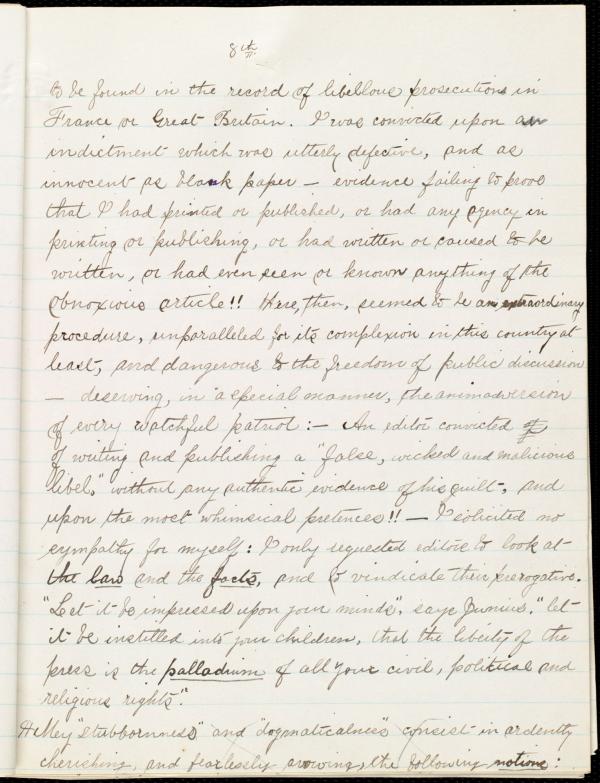 8th
to be found in the record of libellous prosecutions in
France or Great Britain. I was convicted upon an
indictment which was utterly defective, and as
innocent as blank paper — evidence failing to prove
that I had printed or published, or had any agency in
printing or publishing, or had written or caused to be
written, or had even seen or known anything of the
obnoxious article!! Here, then, seemed to be an extraordinary
procedure, unparalleled for its complexion in this country at
least, and dangerous to the freedom of public discussion
— deserving, in a special manner, the animadversion
of every watchful patriot :— An editor convicted of
of writing and publishing a "false, wicked and malicious
libel," without any authentic evidence of his guilt, and
upon the most whimsical pretences!! — I solicited no
sympathy for myself: I only requested editors to look at
the law and the facts, and to vindicate their prerogative.
"Let it be impressed upon your minds", says Junius, "let
it be instilled into your children, that the liberty of the
press is the palladium of all your civil, political and
religious rights".
My "stubbornness" and "dogmaticalness" consist in ardently
cherishing, and fearlessly avowing, the following notions: